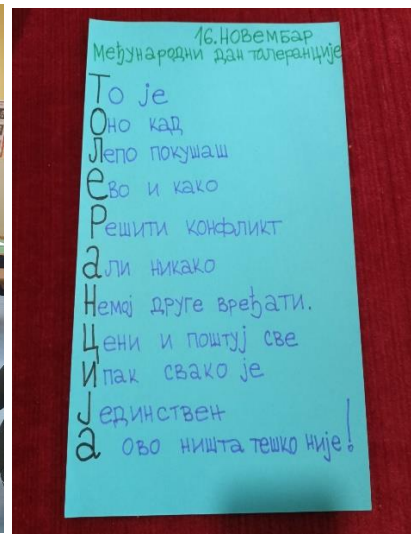 16. Новембар
Међународни дан толеранције
То је
Оно кад
Лепо покушаш
Ево и како
Решити конфликт
али никако
Немој друге вређати.
Цени и поштуј све
Ипак свако је
Јединствен
а ово ништа тешко није!